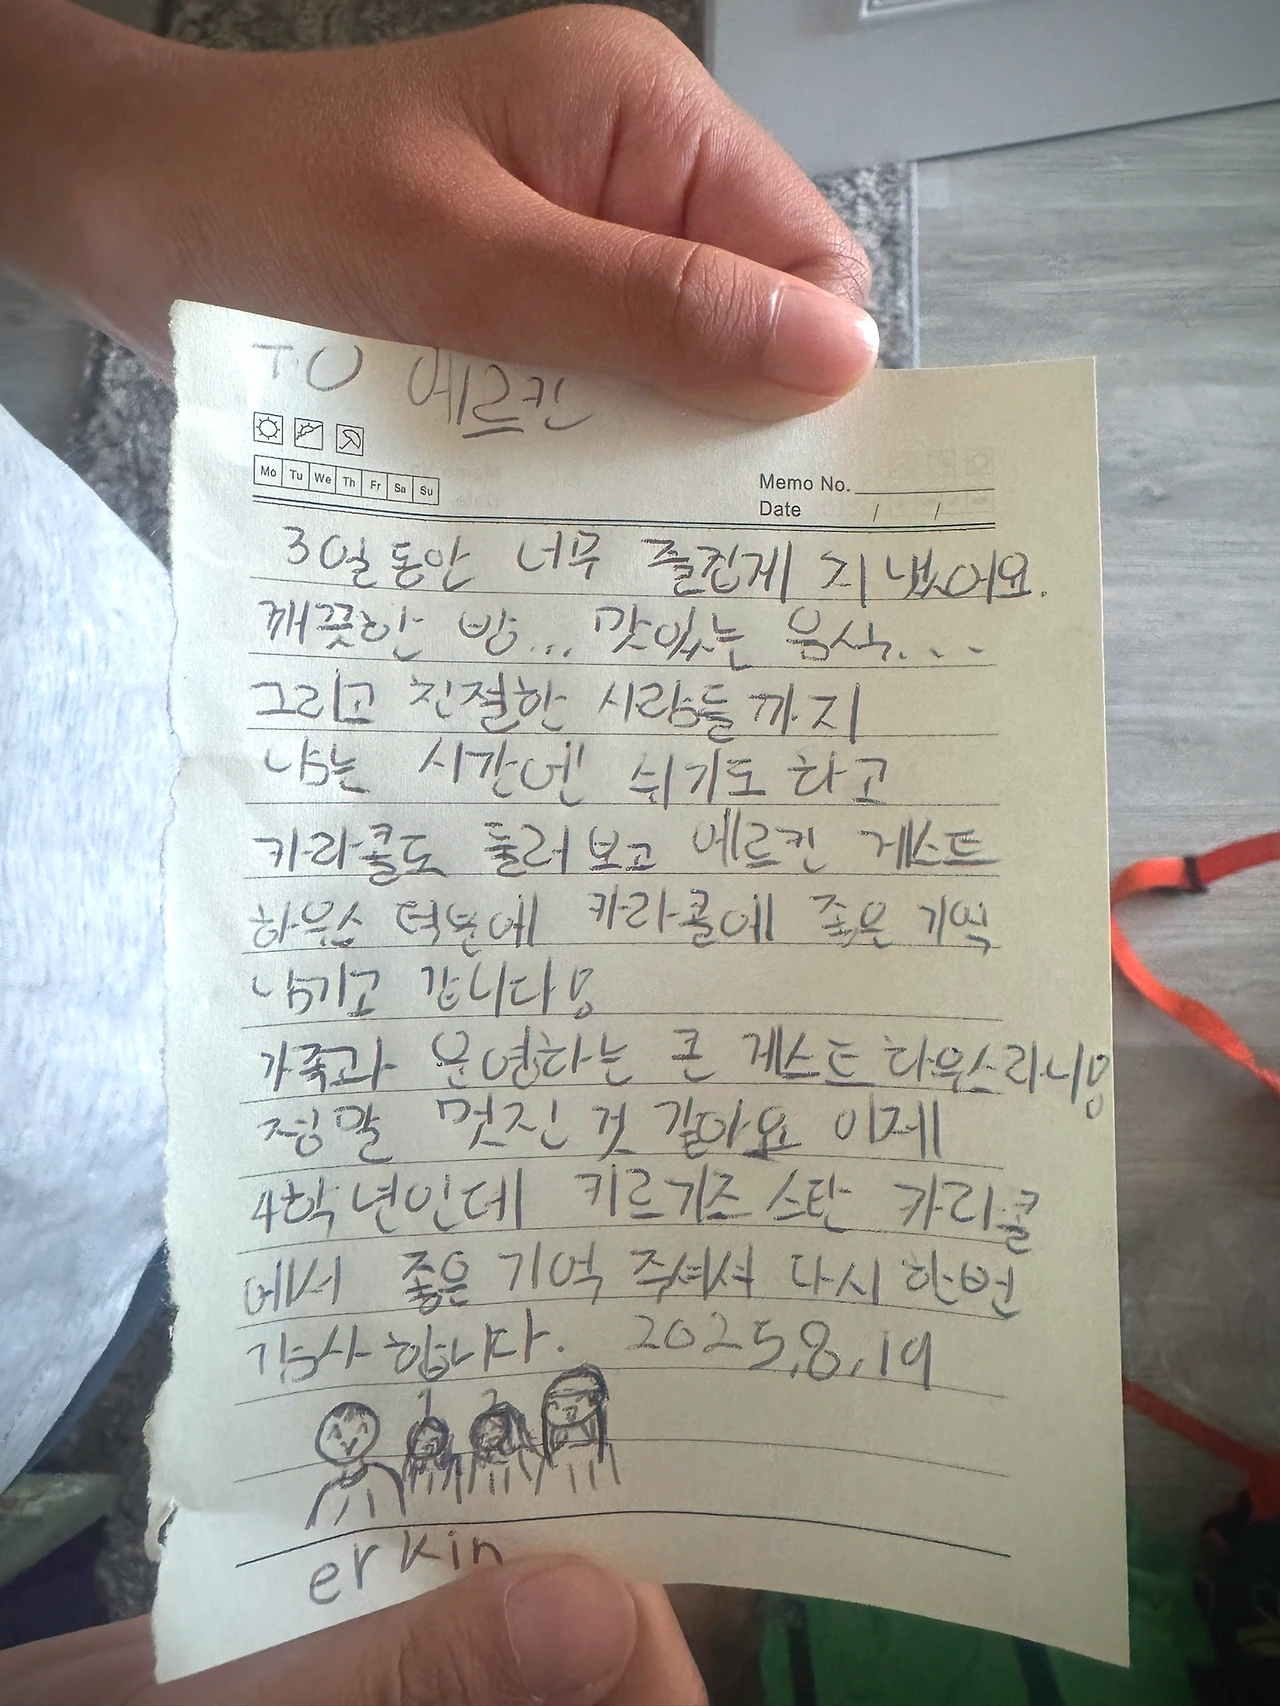 TO 에르킨
Mo Tu We Th Fr Sa Su
Memo No.
Date / /
30일동안 너무 즐겁게 지냈어요.
깨끗한 방... 맛있는 음식....
그리고 친절한 사람들까지
남는 시간엔 쉬기도 하고
카라콜도 둘러보고 에르킨 게스트
하우스 덕분에 카라콜에 좋은 기억
남기고 갑니다!
가족과 운영하는 큰 게스트하우스라니!
정말 멋진 것 같아요 이제
4학년인데 키르기즈스탄 카라콜
에서 좋은 기억 주셔서 다시 한번
감사합니다. 2025.8.19
1 2
erkin